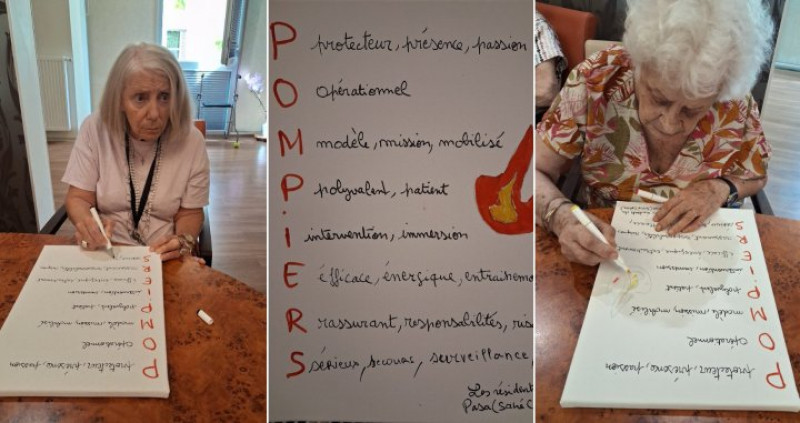 P protecteur, présence, passion
O opérationnel
M modèle, mission, mobilisé
P polyvalent, patient
I intervention, immersion
E éfficace, énergique,
R rassurant, responsabilités,
S sérieux, secours, surveillance,
Les
Pasa